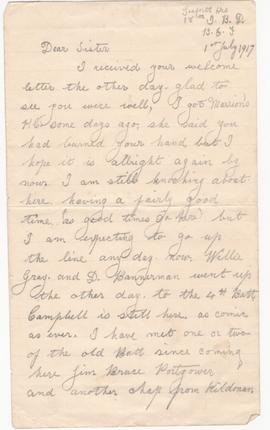 18 I.B.D.
B.E.F
1st July 1917
Dear Sister
I recived your welcome
letter the other day. glad to
see you were well, I got Marrion's
P.C. some days ago, she said you
had burned your hand but I
hope it is allright again by
now. I am still knocking about
here having a fairly good
time, so good times but
I am expecting to go up
the line any day now. Willie
Gray. and D. Bannerman went up
the other day. to the 4th Batt
Campbell is still here. as comic
as ever. I have met one or two
of the old Batt since coming
here Jim Bruce Portgower
and another chap from Kildonan